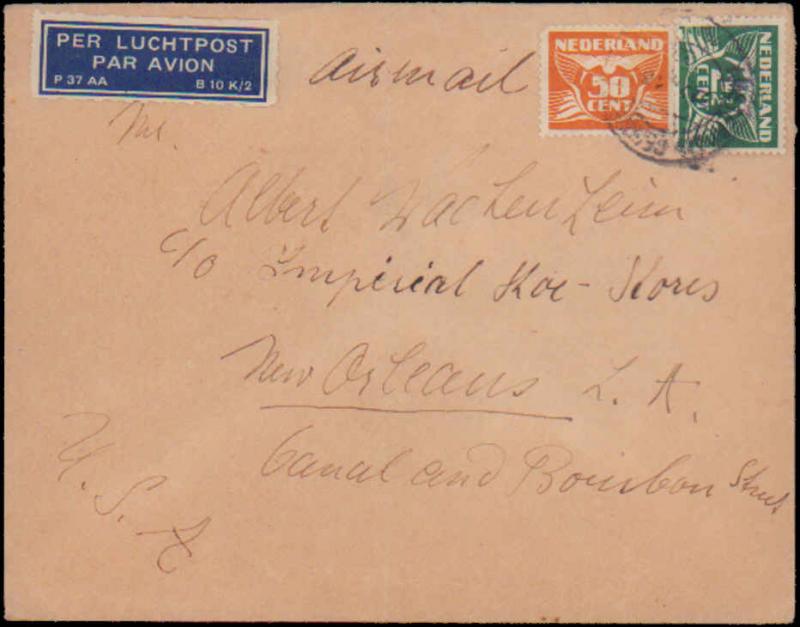 PER LUCHTPOST
PAR AVION
P 37 AA B 10 K/2
airmail
NEDERLAND
50
CENT
NEDERLAND
CENT
Mr.
Albert Wachenheim
c/o Imperial Shoe-Stores
New Orleans L.A.
Canal and Bourbon Street
U.S.A